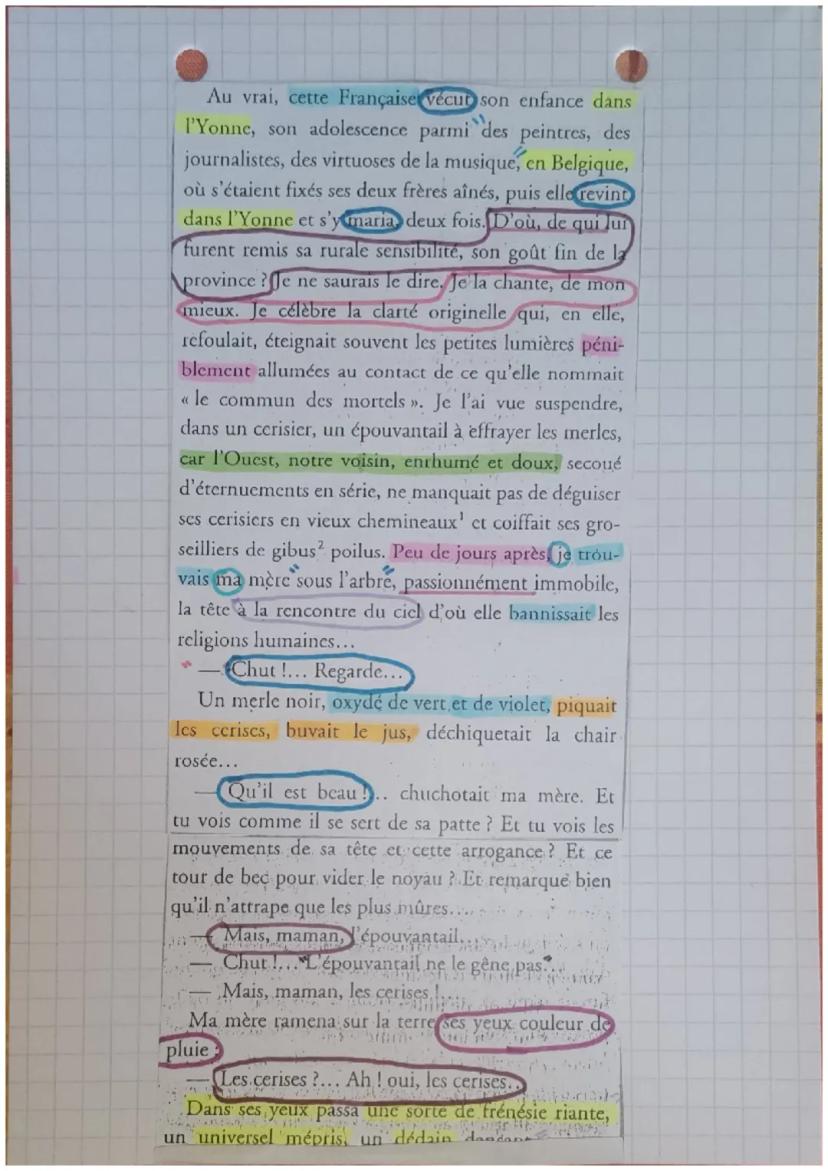 Au vrai, cette Française vécut son enfance dans
l'Yonne, son adolescence parmi des peintres, des
journalistes, des virtuoses de la musique, en Belgique,
où s'étaient fixés ses deux frères aînés, puis elle revint
dans l'Yonne et s'y maria, deux fois. D'où, de qui lui
furent remis sa rurale sensibilité, son goût fin de la
province ? Je ne saurais le dire. Je la chante, de mon
mieux. Je célèbre la clarté originelle qui, en elle,
refoulait, éteignait souvent les petites lumières péni-
blement allumées au contact de ce qu'elle nommait
« le commun des mortels ». Je l'ai vue suspendre,
dans un cerisier, un épouvantail à effrayer les merles,
car l'Ouest, notre voisin, enrhumé et doux, secoué
d'éternuements en série, ne manquait pas de déguiser
ses cerisiers en vieux chemineaux¹ et coiffait ses gro-
seilliers de gibus² poilus. Peu de jours après, je trou-
vais ma mère sous l'arbre, passionnément immobile,
la tête à la rencontre du ciel d'où elle bannissait les
religions humaines...
— Chut !... Regarde...
Un merle noir, oxydé de vert et de violet, piquait
les cerises, buvait le jus, déchiquetait la chair
rosée...
— Qu'il est beau !... chuchotait ma mère. Et
tu vois comme il se sert de sa patte ? Et tu vois les
mouvements de sa tête et cette arrogance ? Et ce
tour de bec pour vider le noyau ? Et remarque bien
qu'il n'attrape que les plus mûres...
— Mais, maman, l'épouvantail...
— Chut !... L'épouvantail ne le gêne pas...
— Mais, maman, les cerises !...
Ma mère ramena sur la terre ses yeux couleur de
pluie :
— Les cerises ?... Ah ! oui, les cerises...
Dans ses yeux passa une sorte de frénésie riante,
un universel mépris, un dédain dansant